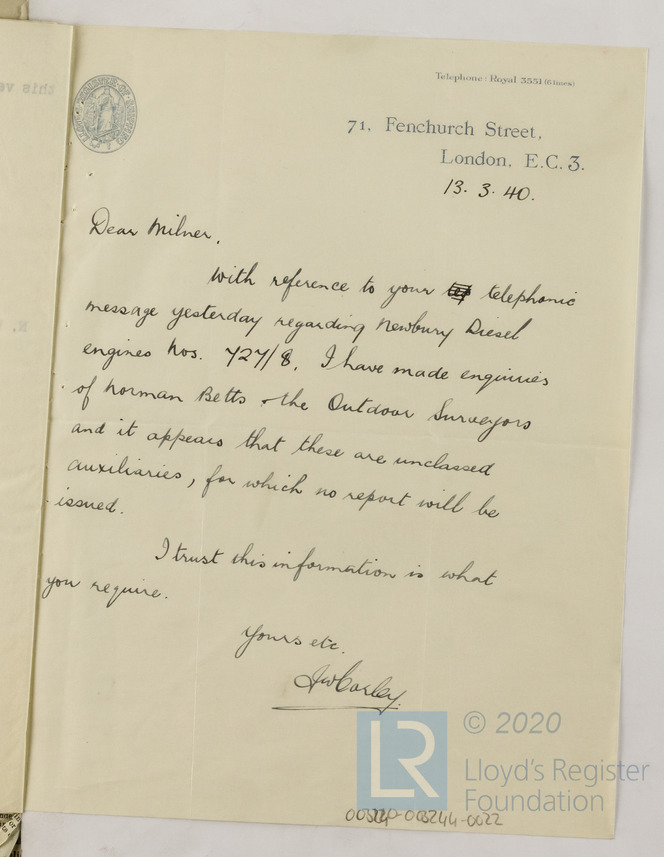 Telephone: Royal 3551 (6 lines)
71, Fenchurch Street,
London, E.C. 3.
13. 3. 40.
Dear Milner,
With reference to your telephonic
message yesterday regarding Newbury Diesel
engines Nos. 727/8, I have made enquiries
of Norman Betts & the Outdoor Surveyors
and it appears that these are unclassed
auxiliaries, for which no report will be
issued.
I trust this information is what
you require.
Yours etc.
JWCorley.
LR
© 2020
Lloyd's Register
Foundation